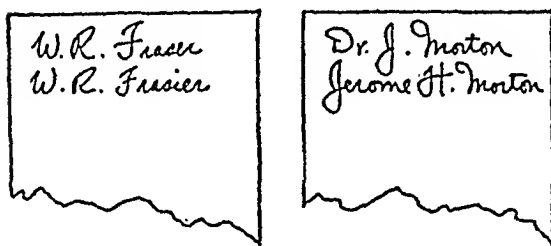 W. R. Fraser
W. R. Frasier
Dr. J. Morton
Jerome H. Morton